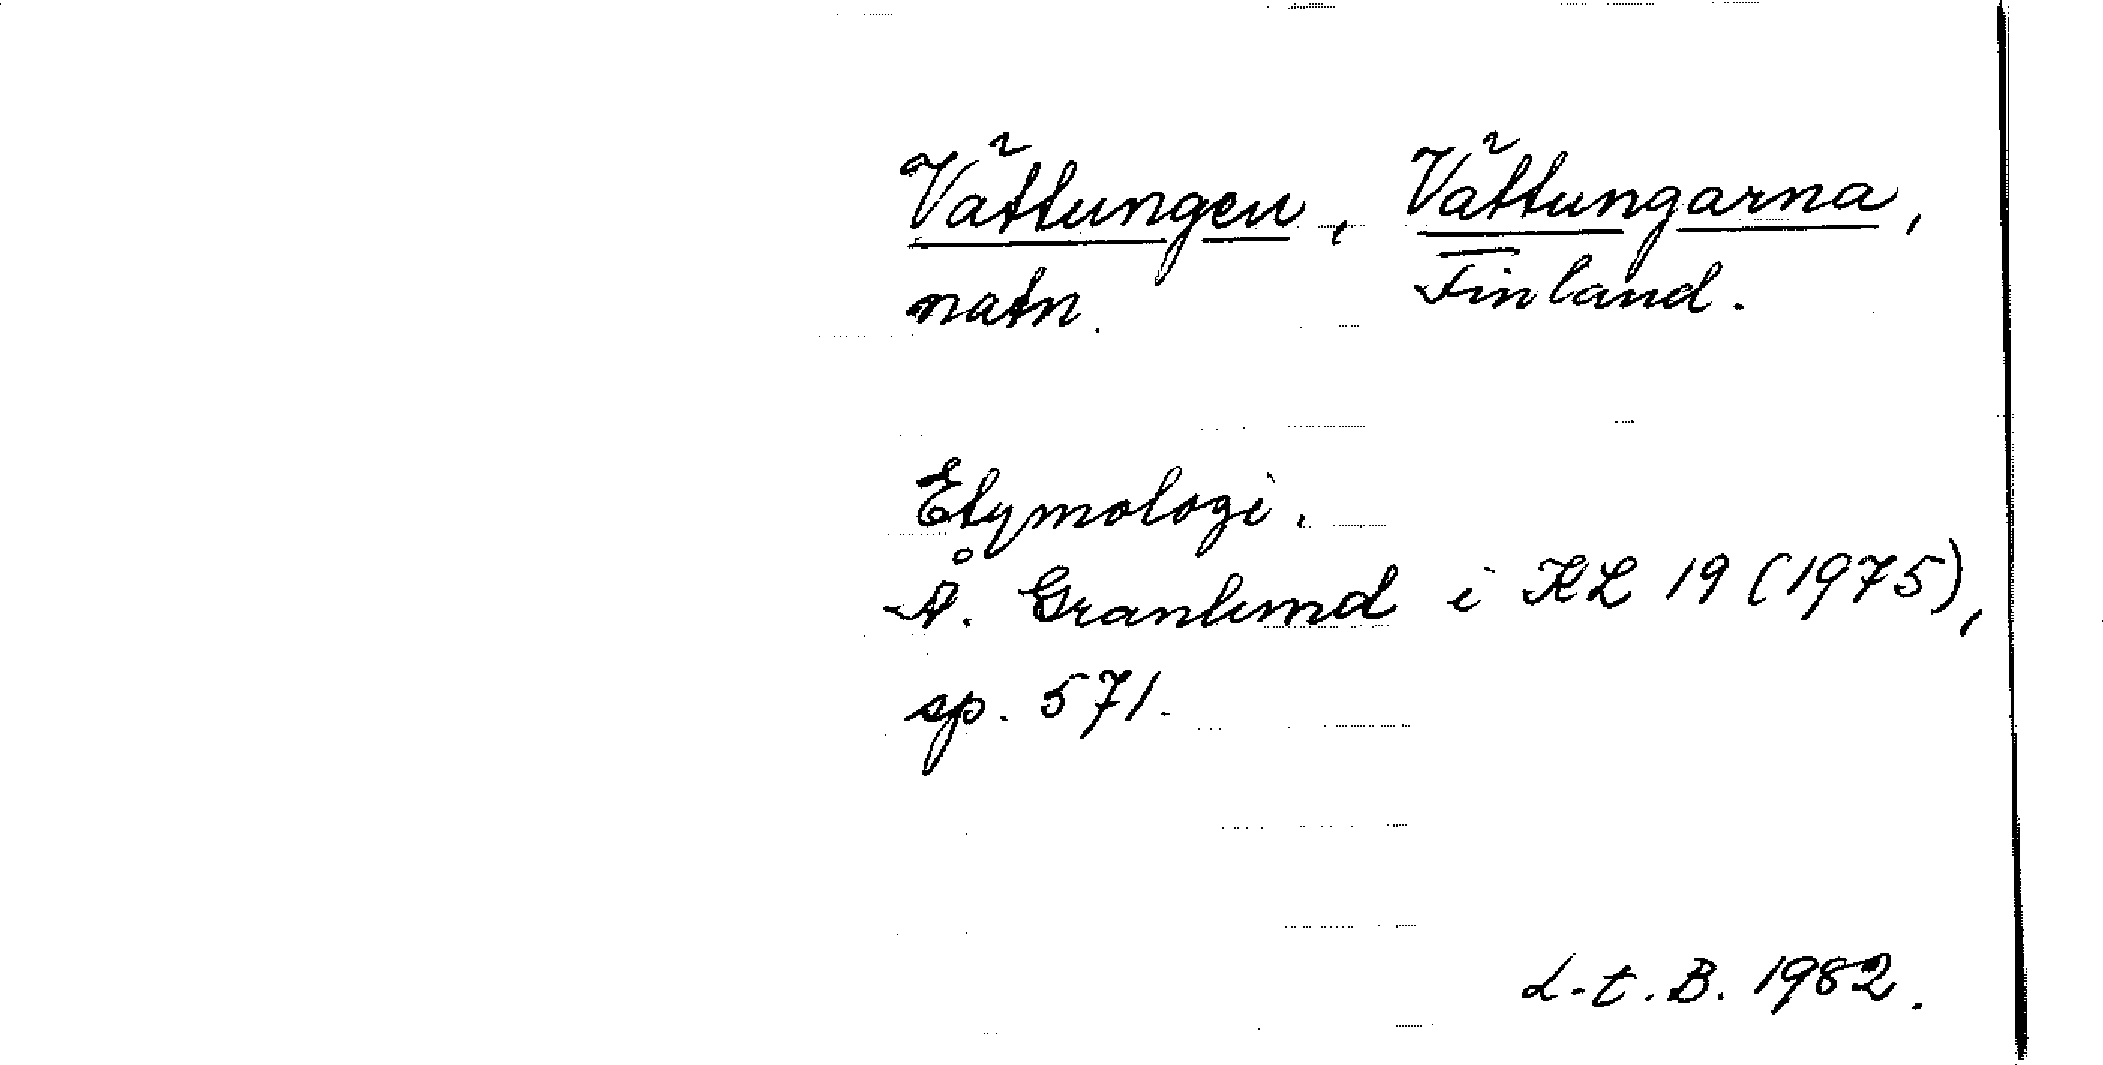 Vättungen, Vättungarna,
natn. Finland.
Etymologi.
Å. Granlund i KL 19 (1975),
sp. 571.
L-t. B. 1982.